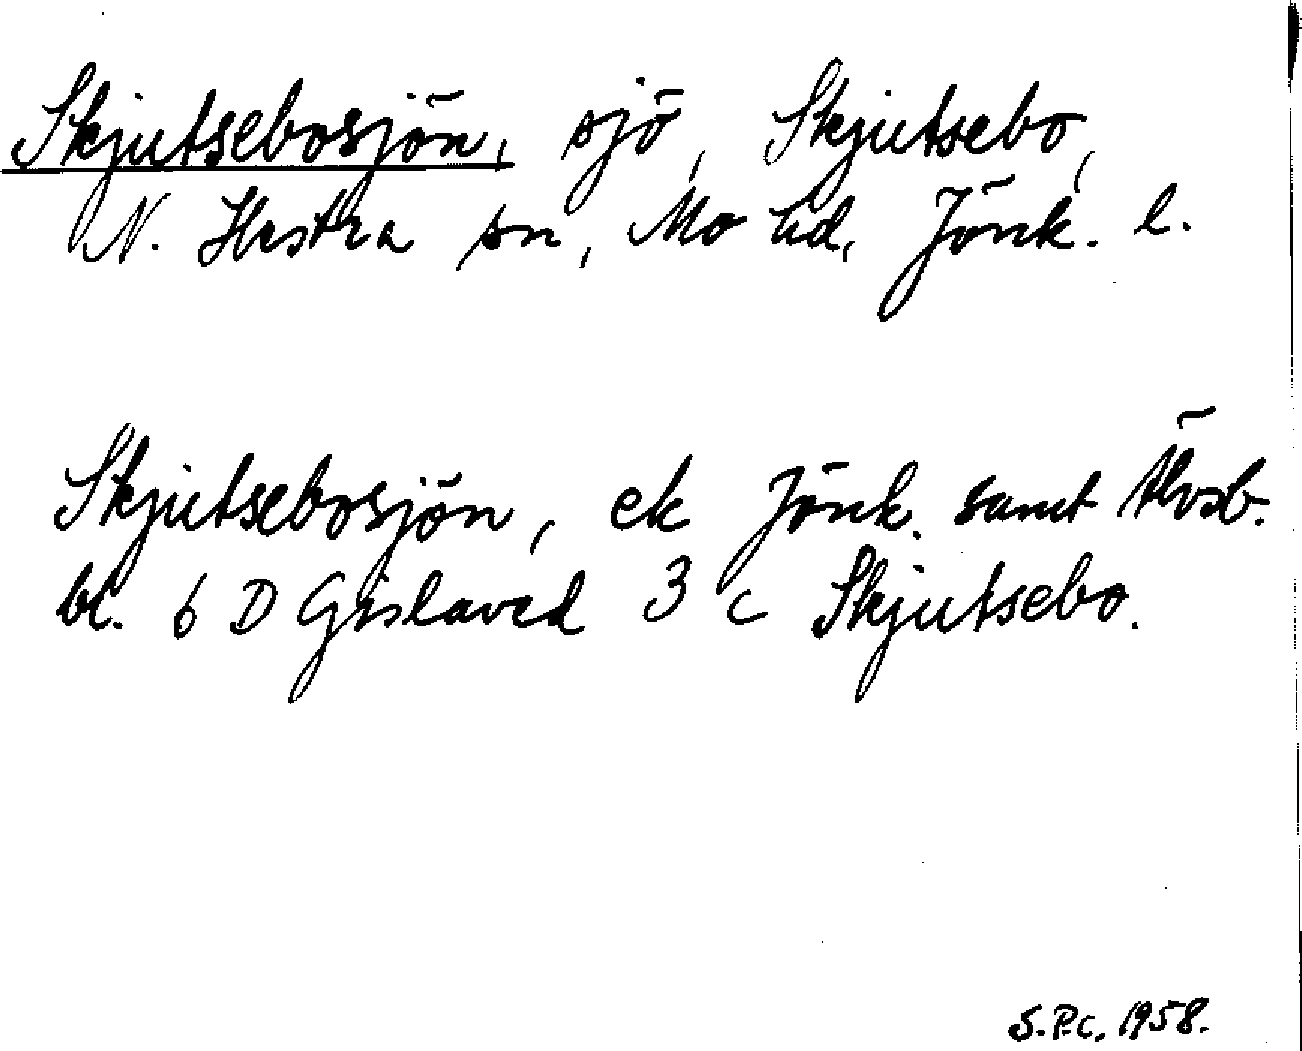 Skjutsebosjön, sjö, Skjutsebo,
N. Hestra sn, Mo hd, Jönk. l.
Skjutsebosjön, ek Jönk. samt Älvsb.
bl. 6 D Gislaved 3 c Skjutsebo.
S.P.C. 1958.